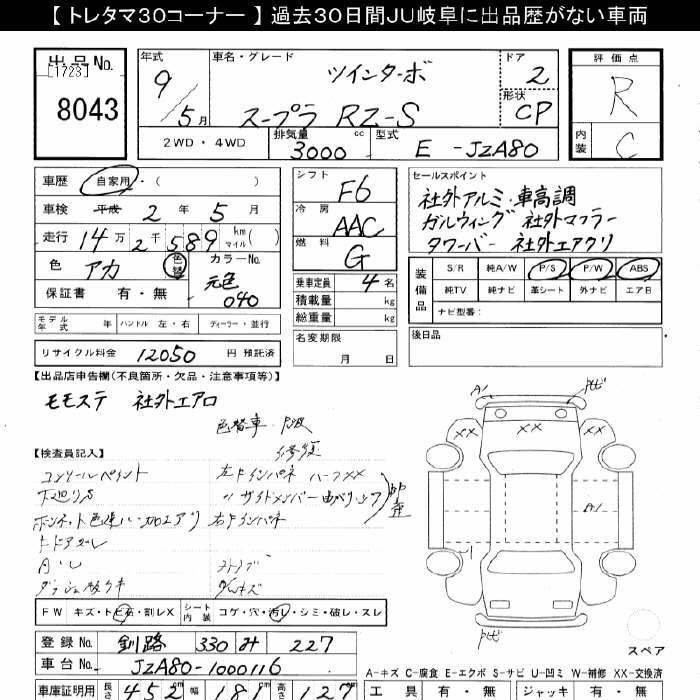 【 トレタマ３０コーナー 】 過去３０日間ＪＵ岐阜に出品歴がない車両
出品 No.
[1723]
8043
年式
9／5月
車名・グレード
ツインターボ
スープラ RZ-S
ドア
2
形状
CP
2WD・4WD
排気量
3000 cc
型式
E - JZA80
評価点
R
内装
C
車歴 自家用・( )
車検 平成 2 年 5 月
走行 14 万 2 千 589 km マイル ( )
色 アカ 色替
カラーNo.
元色
040
保証書 有・無
モデル年式 年 ハンドル 左・右 ディーラー・並行
リサイクル料金 12050 円 預託済
シフト
F6
冷房
AAC
燃料
G
乗車定員 4 名
積載量 kg
総重量 kg
名変期限
月 日
セールスポイント
社外アルミ・車高調
ガルウィング 社外マフラー
タワーバー 社外エアクリ
装備品
S/R 純A/W P/S P/W ABS
純TV 純ナビ 革シート 外ナビ エアB
ナビ型番：
後日品
【出品店申告欄(不良箇所・欠品・注意事項等)】
モモステ 社外エアロ
色替車
修復
【検査員記入】
コンソールペイント
左Fインパネ ハーフXX
下廻りS
〃 サイドメンバー曲ベリ
右Fインパネ
A・U
ストラブ
ダッシュ
A1
トビ
XX XX XX
A1
トビ
FW キズ・トビ石・割レX
シート内装 コゲ・穴・汚レ・シミ・破レ・スレ
登録 No. 釧路 330 み 227
車台 No. JZA80-1000116
車庫証明用 長さ 452 cm 幅 181 cm 高さ 127 cm
スペア
A-キズ C-腐食 E-エクボ S-サビ U-凹ミ W-補修 XX-交換済
工具 有・無 ジャッキ 有・無